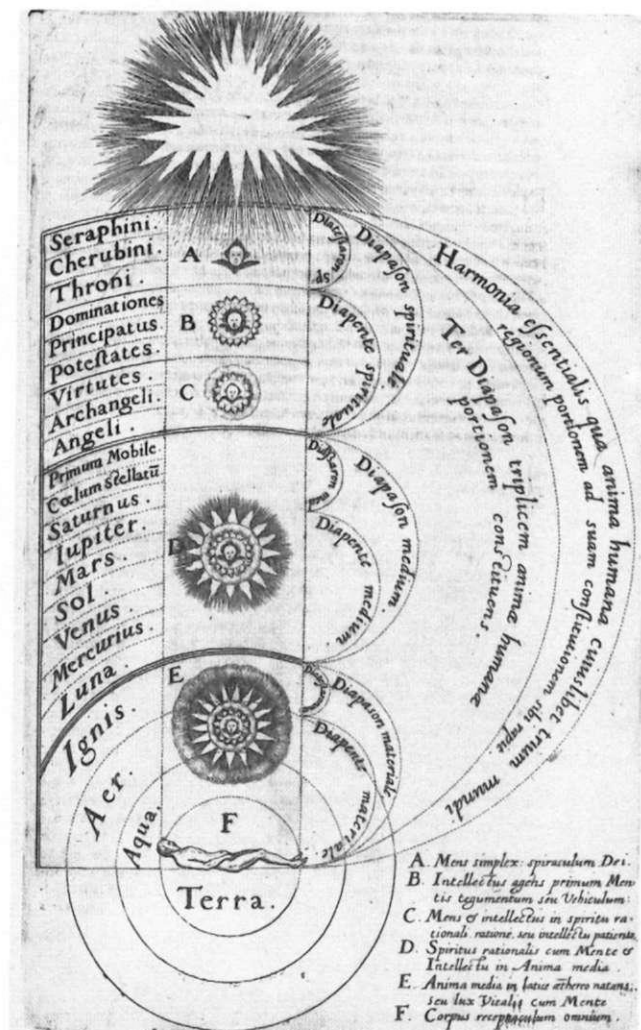 Seraphini.
Cherubini.
Throni.
Dominationes
Principatus.
Potestates.
Virtutes.
Archangeli.
Angeli.
Primum Mobile.
Cœlum stellatū
Saturnus.
Iupiter.
Mars.
Sol.
Venus.
Mercurius.
Luna.
Ignis.
Aer.
Aqua.
Terra.
A
B
C
D
E
F
Diapason spirituale
Diapente spirituale
Diapason medium.
Diapente medium.
Diapason materiale.
Diapente materiale.
Ter Diapason triplicem animæ humanæ
portionem constituens.
Harmonia essentialis qua anima humana cuiuslibet trium mundi
regionum portionem ad suam constitutionem sibi rapit.
A. Mens simplex: spiraculum Dei.
B. Intellectus agens primum Men
tis tegumentum seu Vehiculum:
C. Mens & intellectus in spiritu ra-
tionali, ratione, seu intellectu patiente,
D. Spiritus rationalis cum Mente &
Intellectu in Anima media.
E. Anima media in æthereo natans,
seu lux Vitalis cum Mente
F. Corpus receptaculum omnium.